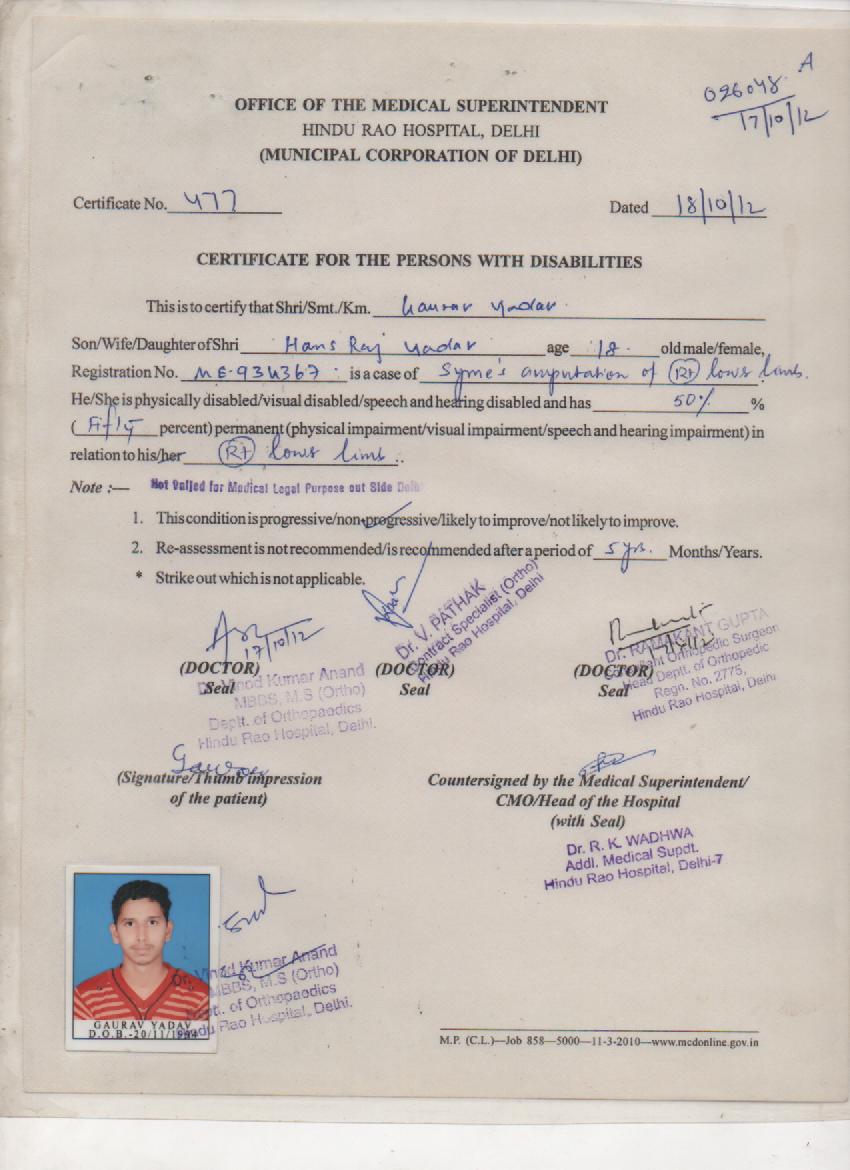 026048 A
17/10/12
OFFICE OF THE MEDICAL SUPERINTENDENT
HINDU RAO HOSPITAL, DELHI
(MUNICIPAL CORPORATION OF DELHI)
Certificate No. 477 Dated 18/10/12
CERTIFICATE FOR THE PERSONS WITH DISABILITIES
This is to certify that Shri/Smt./Km. Gaurav Yadav
Son/Wife/Daughter of Shri Hans Raj Yadav age 18 old male/female,
Registration No. ME-934367 is a case of Syme's amputation of Rt lower limb.
He/She is physically disabled/visual disabled/speech and hearing disabled and has 50% %
(Fifty percent) permanent (physical impairment/visual impairment/speech and hearing impairment) in
relation to his/her Rt lower limb.
Note :— Not Valied for Medical Legal Purpose out Side Delhi
1. This condition is progressive/non-progressive/likely to improve/not likely to improve.
2. Re-assessment is not recommended/is recommended after a period of 5 yrs. Months/Years.
* Strike out which is not applicable.
17/10/12
(DOCTOR) (DOCTOR) (DOCTOR)
Seal Seal Seal
Dr. Vinod Kumar Anand
MBBS, M.S (Ortho)
Deptt. of Orthopaedics
Hindu Rao Hospital, Delhi.
Dr. V. PATHAK
Contract Specialist (Ortho)
Hindu Rao Hospital, Delhi
Dr. RAMAKANT GUPTA
Orthopedic Surgeon
Head Deptt. of Orthopedic
Regn. No. 2775,
Hindu Rao Hospital, Delhi
Gaurav
(Signature/Thumb impression
of the patient)
Countersigned by the Medical Superintendent/
CMO/Head of the Hospital
(with Seal)
Dr. R. K. WADHWA
Addl. Medical Supdt.
Hindu Rao Hospital, Delhi-7
Dr. Vinod Kumar Anand
MBBS, M.S (Ortho)
Deptt. of Orthopaedics
Hindu Rao Hospital, Delhi.
GAURAV YADAV
D.O.B.-20/11/1994
M.P. (C.L.)—Job 858—5000—11-3-2010—www.mcdonline.gov.in